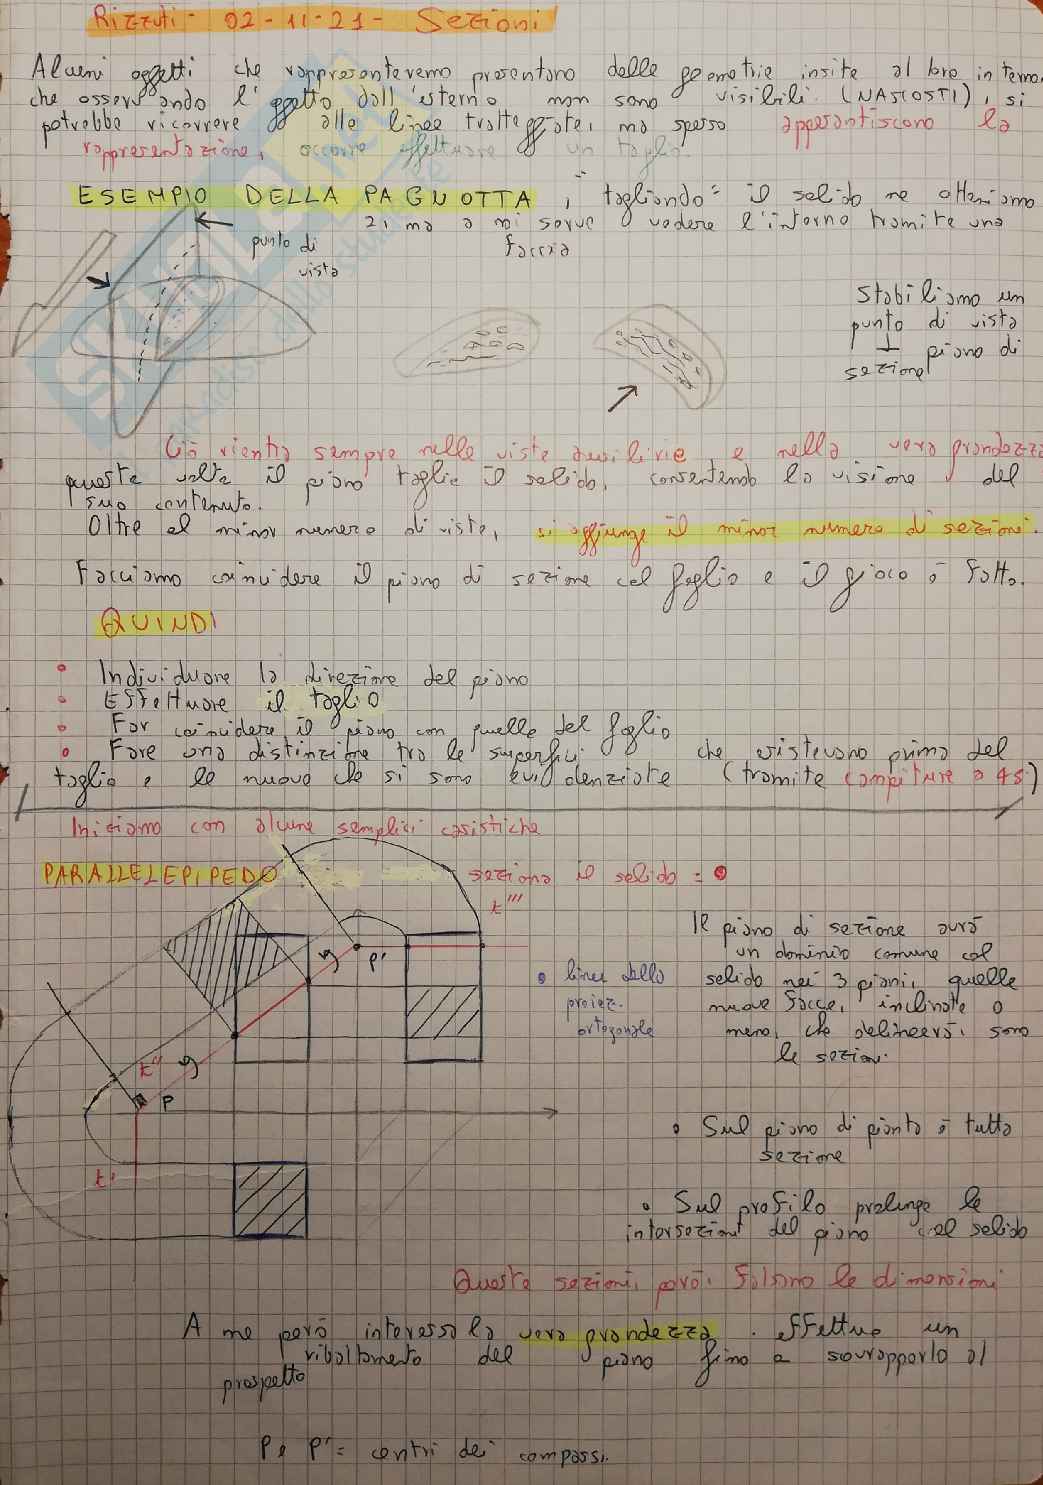 Rizzuti - 02-11-21 - Sezioni
Alcuni oggetti che rappresenteremo presentano delle geometrie insite al loro interno
che osservando l'oggetto dall'esterno non sono visibili. (NASCOSTI), si
potrebbe ricorrere alle linee tratteggiate, ma spesso appesantiscono la
rappresentazione, occorre effettuare un taglio.
ESEMPIO DELLA PAGNOTTA, tagliando il solido ne otteniamo
2, ma a noi serve vedere l'interno tramite una
faccia
punto di
vista
Stabiliamo un
punto di vista
⊥ piano di
sezione
Ciò rientra sempre nelle viste ausiliarie, e nella vera grandezza
questa volta il piano taglia il solido, consentendo la visione del
suo contenuto.
Oltre al minor numero di viste, si aggiunge il minor numero di sezioni.
Facciamo coincidere il piano di sezione col foglio e il gioco è fatto.
QUINDI
• Individuare la direzione del piano
• Effettuare il taglio
• Far coincidere il piano con quello del foglio
• Fare una distinzione tra le superfici che esistevano prima del
taglio e le nuove che si sono evidenziate (tramite campiture a 45°)
Iniziamo con alcune semplici casistiche
PARALLELEPIPEDO
seziona il solido = •
t'''
P'
t''
P
t'
• linea dello
proiez.
ortogonale
Il piano di sezione avrà
un dominio comune col
solido nei 3 piani, quelle
nuove facce, inclinate o
meno, che delineerà, sono
le sezioni.
• Sul piano di pianta è tutta
sezione
• Sul profilo prolungo le
intersezioni del piano col solido
Queste sezioni, però, falsano le dimensioni
A me però interessa la vera grandezza. effettuo un
ribaltamento del piano fino a sovrapporlo al
prospetto
P e P' = centri dei compassi.